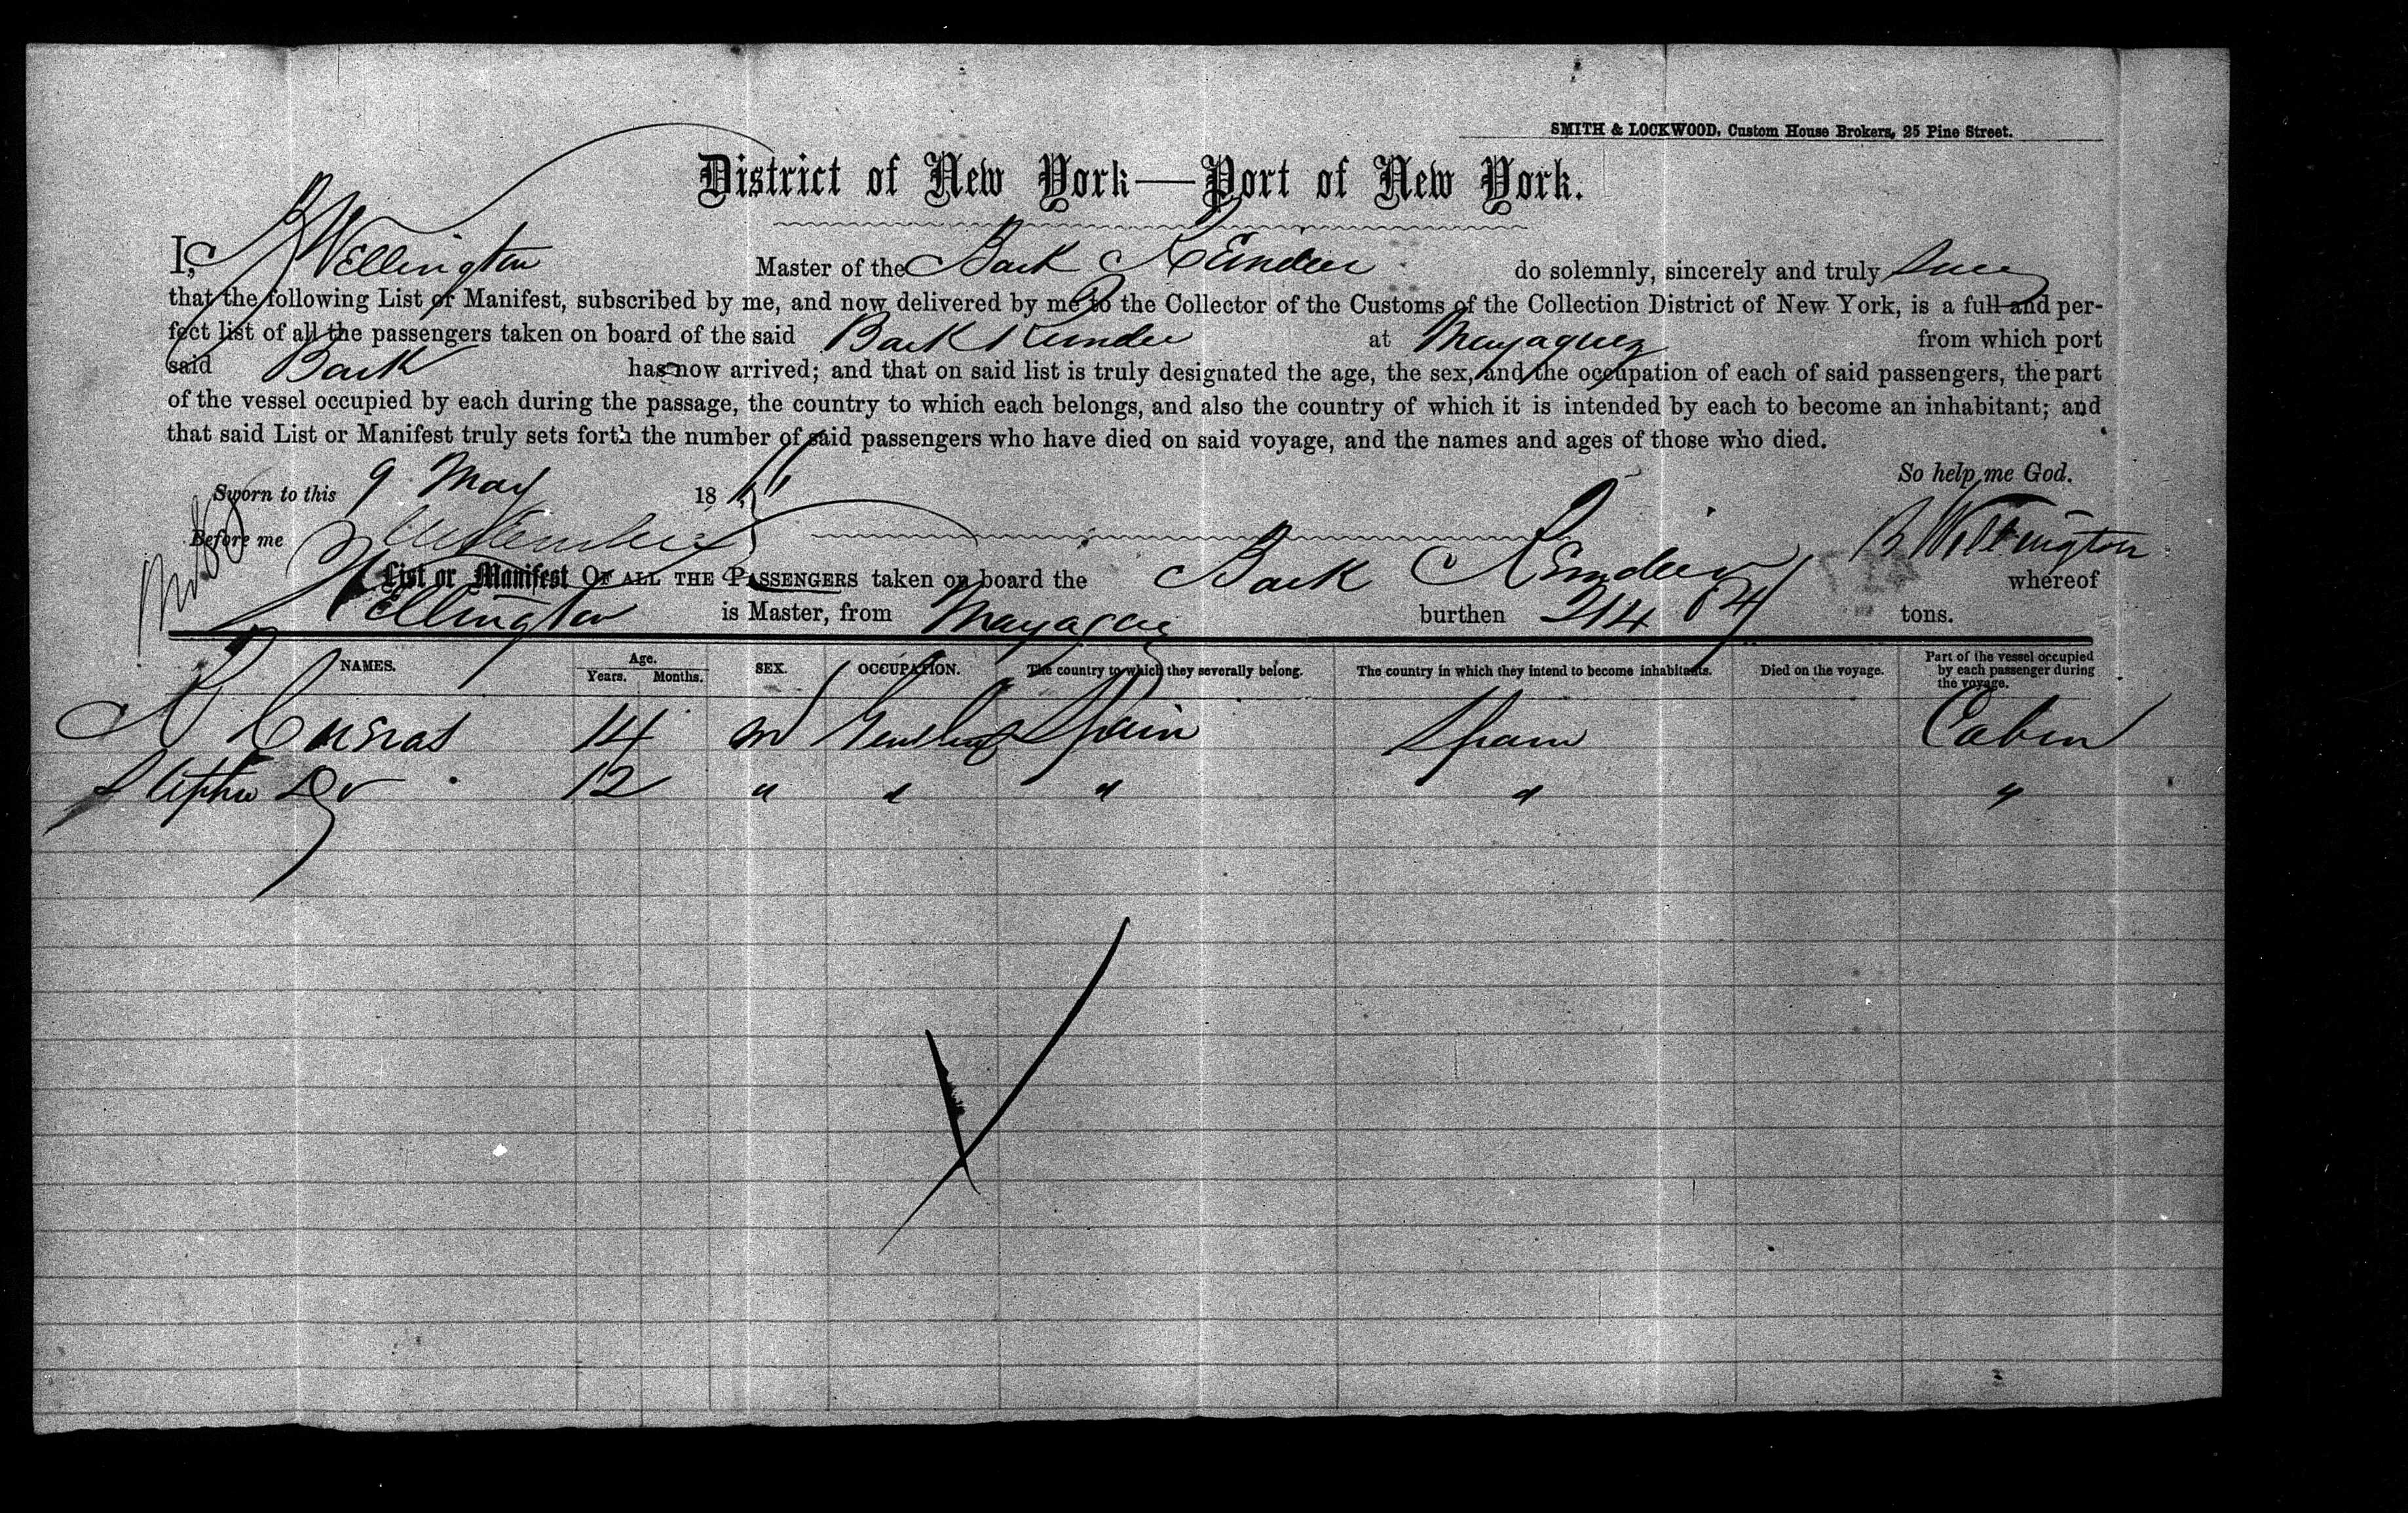 SMITH & LOCKWOOD, Custom House Brokers, 25 Pine Street.
District of New York—Port of New York.
I, B Wellington Master of the Bark Reindeer do solemnly, sincerely and truly
that the following List or Manifest, subscribed by me, and now delivered by me to the Collector of the Customs of the Collection District of New York, is a full and per-
fect list of all the passengers taken on board of the said Bark Reindeer at Mayaguez from which port
said Bark has now arrived; and that on said list is truly designated the age, the sex, and the occupation of each of said passengers, the part
of the vessel occupied by each during the passage, the country to which each belongs, and also the country of which it is intended by each to become an inhabitant; and
that said List or Manifest truly sets forth the number of said passengers who have died on said voyage, and the names and ages of those who died.
So help me God.
Sworn to this 9 May 18
Before me
B Wellington
List or Manifest OF ALL THE PASSENGERS taken on board the Bark Reindeer whereof
Wellington is Master, from Mayaguez burthen 214 tons.
NAMES. Age. Years. Months. SEX. OCCUPATION. The country to which they severally belong. The country in which they intend to become inhabitants. Died on the voyage. Part of the vessel occupied by each passenger during the voyage.
14 m Spain Spain Cabin
Do 12 " " " " "